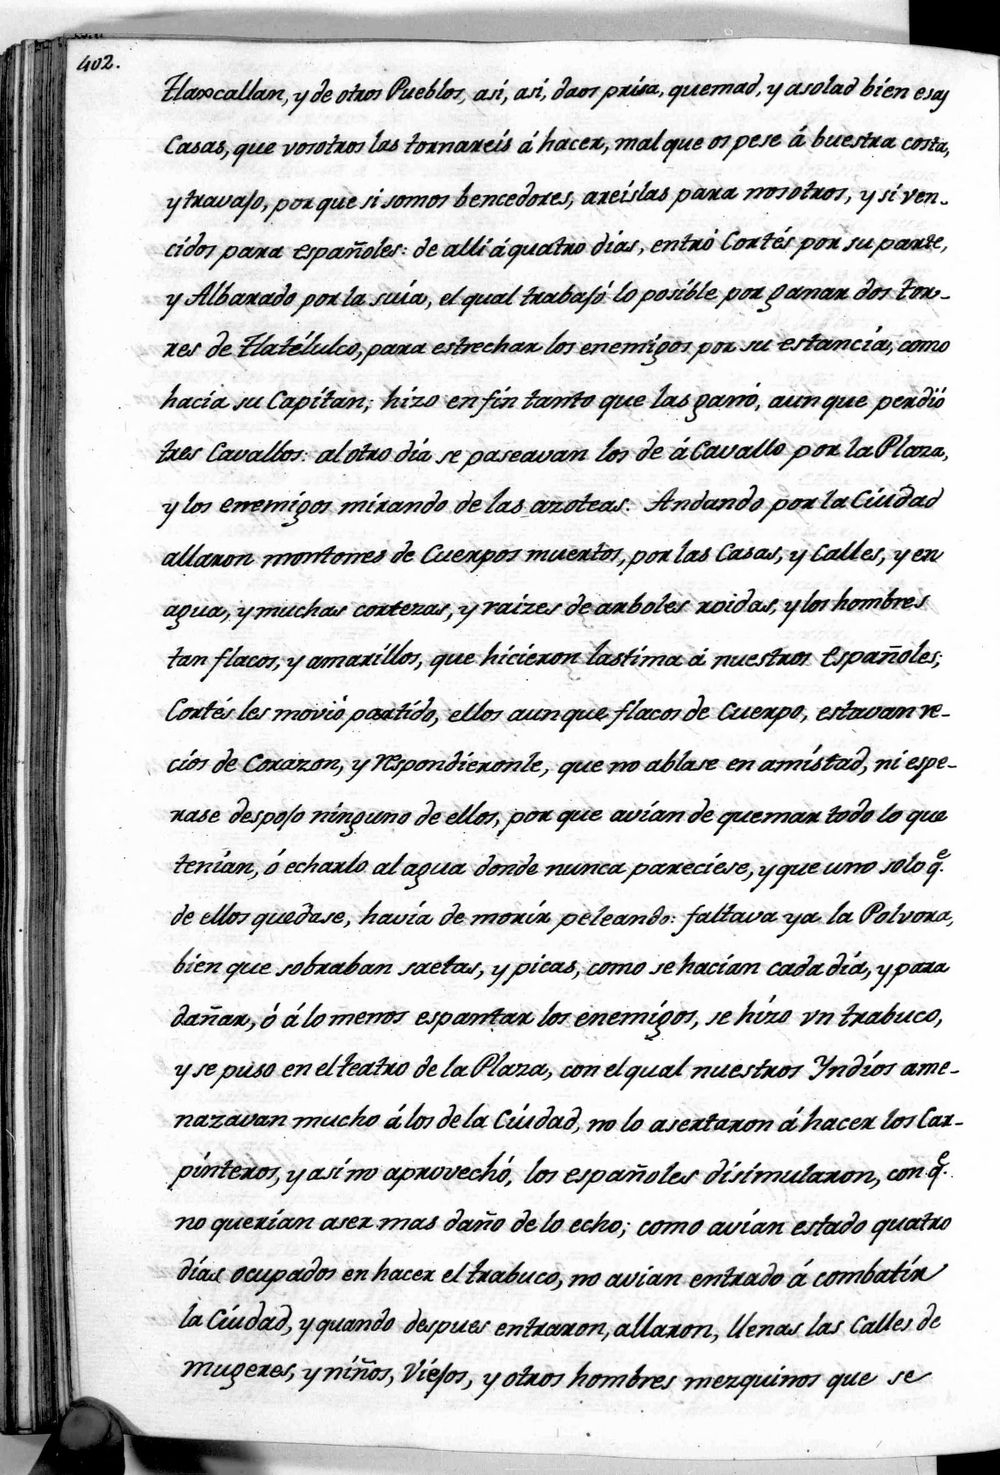 402.
Tlaxcallan, y de otros Pueblos, asi, asi, daos prisa, quemad, y asolad bien esas
Casas, que vosotros las tornareis á hacer, mal que os pese á buestra costa,
y travajo, por que si somos bencedores, areislas para nosotros, y si ven-
cidos para españoles: de alli á quatro dias, entró Cortés por su parte,
y Albarado por la suia, el qual trabajó lo posible por ganar dos tor-
res de Tlatélulco, para estrechar los enemigos por su estancia, como
hacia su Capitan; hizo en fin tanto que las ganó, aun que perdió
tres Cavallos: al otro dia se paseavan los de á Cavallo por la Plaza,
y los enemigos mirando de las azoteas: Andando por la Ciudad
allaron montones de Cuerpos muertos, por las Casas, y Calles, y en
agua, y muchas cortezas, y raizes de arboles roidas, y los hombres
tan flacos, y amarillos, que hicieron lastima á nuestros Españoles;
Cortés les movió partido, ellos aun que flacos de Cuerpo, estavan re-
cios de Corazon, y respondieronle, que no ablase en amistad, ni espe-
rase despojo ninguno de ellos, por que avian de quemar todo lo que
tenian, ó echarlo al agua donde nunca pareciese, y que uno solo q.e
de ellos quedase, havia de morir peleando: faltava ya la Polvora,
bien que sobraban saetas, y picas, como se hacian cada dia, y para
dañar, ó á lo menos espantar los enemigos, se hizo vn trabuco,
y se puso en el teatro de la Plaza, con el qual nuestros Yndios ame-
nazavan mucho á los de la Ciudad, no lo asertaron á hacer los Car-
pinteros, y asi no aprovechó, los españoles disimularon, con q.e
no querian aser mas daño de lo echo; como avian estado quatro
dias ocupados en hacer el trabuco, no avian entrado á combatir
la Ciudad, y quando despues entraron, allaron, llenas las Calles de
mugeres, y niños, Viejos, y otros hombres mezquinos que se